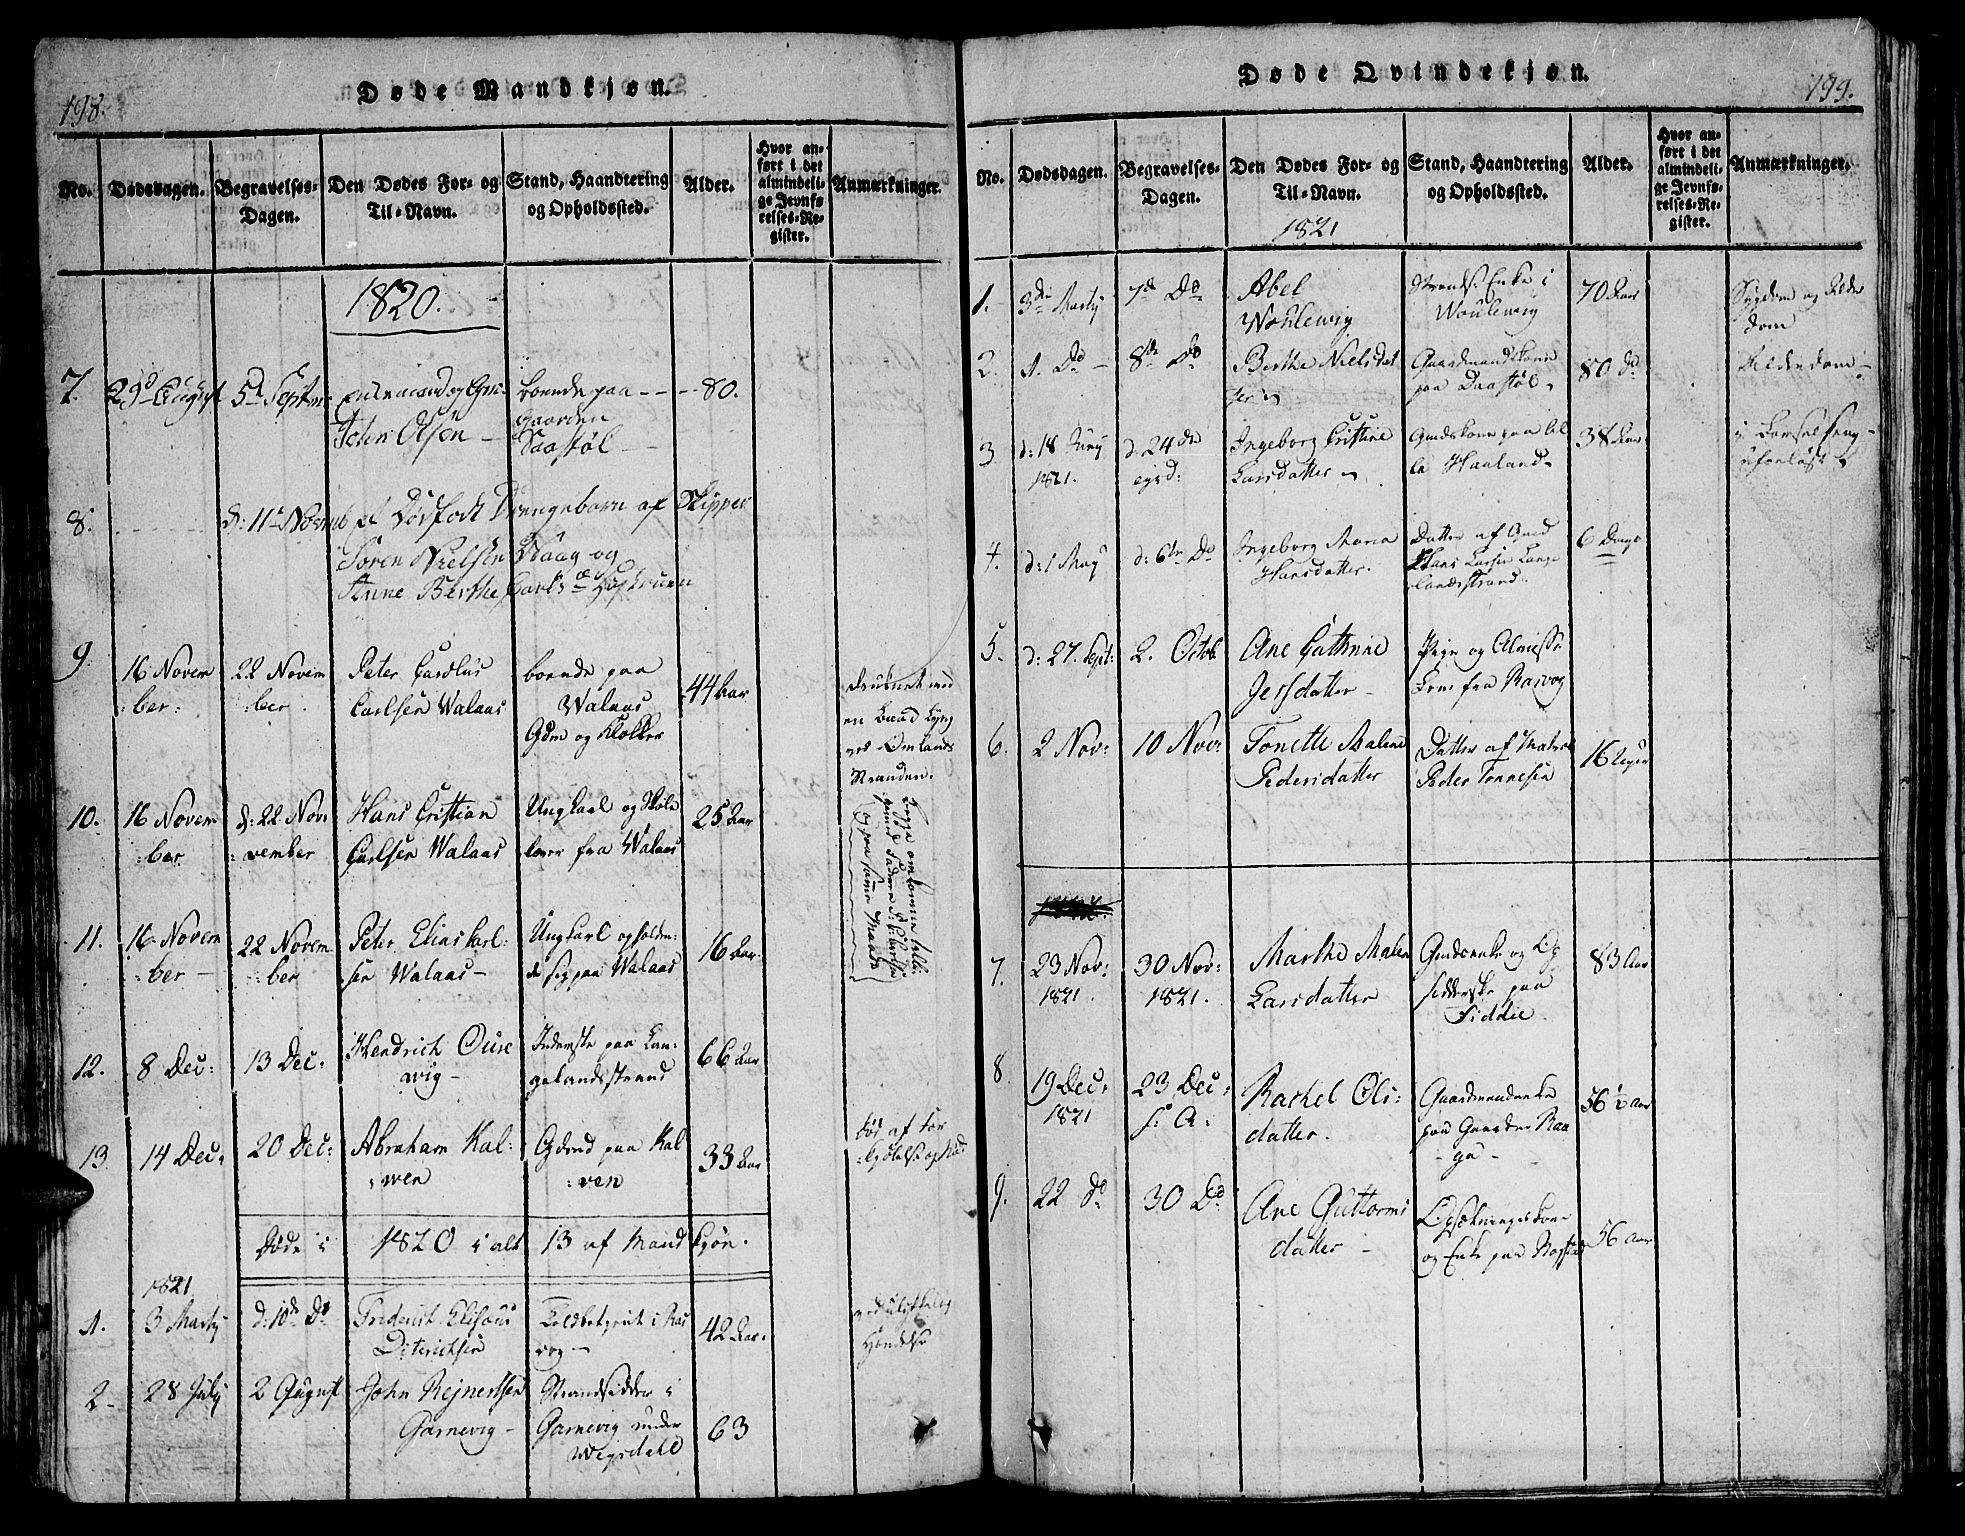 198.
Døde Mandkjøn.
No.
Dødsdagen.
Begravelses-
Dagen.
Den Dødes For- og
Til-Navn.
Stand, Haandtering
og Opholdssted.
Alder.
Hvor an-
ført i det
almindeli-
ge Jevnfø-
relses-Re-
gister.
Anmærkninger.
1820.
7. 29d August 5d Septm:
John Olsen
boende paa
Gaarden
Daastøl
80.
8. d: 11te Novemb et Dødfødt Drengebarn af Skipper
Søren Nielsen Waag og
Anne Berthe Carls
9.
16 Novem
:ber:
22 Novem
:ber
Peter Carolus
Carlsen Walaas
boende paa
Walaas
Gdm og Klokker
44 Aar
druknet med
en Baad
Omlands
Stranden.
10. 16 Novem
:ber
d: 22 Nov
:vember
Hans Cristian
Carlsen Walaas
Ungkarl og Skole
lærer fra Walaas
25 Aar
11. 16 Novem
:ber
22 Novem
:ber
Peter Elias Carl:
sen Walaas
Ungkarl opholden-
de sig paa Walaas
16 Aar.
12. 8 Dec:
13 Dec:
Hendrich Ouse
wig
Inderste paa Lan-
gelandsstrand
66 Aar
13. 14 Dec:
20 Dec:
Abraham Kal:
:wen
Gdmd paa Kal
:ven
33 Aar
død af For
Døde i 1820 i alt 13 af Mandkjøn.
1821
1. 3 Marty
d: 10de Do
Friderich Elisæus
Diterichsen
Toldbetjent i Ras
vog
42 Aar.
ved ulykkelig
Hændelse
2. 28 July
2 August
John Rejnertsen
Garnevig
Strandsidder i
Garnevig under
Wegsdald
63
199.
Døde Qvindekjøn.
No.
Dødsdagen.
Begravelses-
Dagen.
Den Dødes For- og
Til-Navn.
Stand, Haandtering
og Opholdssted.
Alder.
Hvor an-
ført i det
almindeli-
ge Jevnfø-
relses-Re-
gister.
Anmærkninger.
1821
1. 3de Marty
7de Do
Abel
Wohlewig
Strands: Enke i
Woulewig
70 Aar
Sygdom og Alder
dom
2. 1. Do
8de Do
Berthe Nielsdat
ter
Gaardmandskone
paa Daastøl
80 do
Alderdom
3. d: 18 Juny
1821.
d: 24de
ejusd:
Ingeborg Cristine
Larsdatter
Gmdskone paa Lil
le Haaland
38 Aar
i Barselseng
uforløst
4. d: 1 May
d: 6te Do
Ingeborg Maria
Hansdatter.
Datter af Gmd
Hans Larsen Lange
landsstrand.
6 Dage
5. d: 27. Sept:
2. Octob.
Ane Cathrine
Jersdatter
Pige og Almisse
Lem fra Rasvog
6. 2 Nov:
10 Nov:
Tonette Malene
Pedersdatter
Datter af Matros
Peder Tønnesen
16 Uger
7. 23 Nov:
1821.
30 Nov:
1821.
Marthe Malen
Larsdatter
Gmdsenke og Op
sidderske paa
Fidde.
83 Aar
8. 19 Dec:
1821
23 Dec:
s: A:
Rachel Ols:
datter.
Gaardmandenke
paa Gaarden Raa
ga
56 ½ Aar
9. 22 Do
30 Do
Ane Guttorms
datter
og Enke paa Rogstad
56 Aar